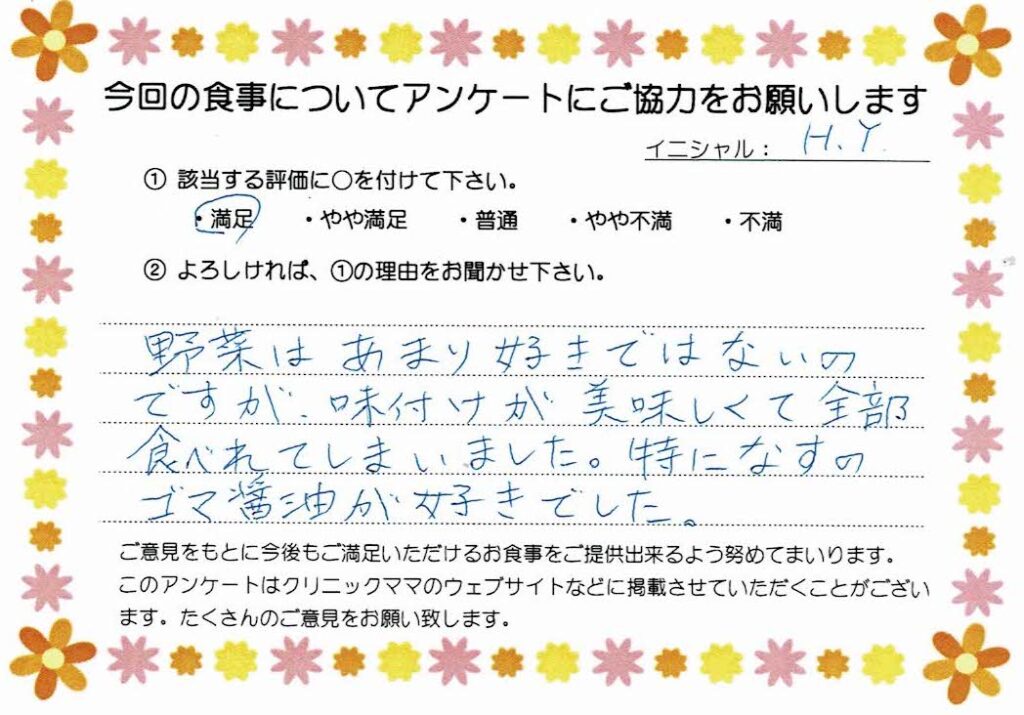 今回の食事についてアンケートにご協力をお願いします
イニシャル： H.Y.
① 該当する評価に○を付けて下さい。
・満足 ・やや満足 ・普通 ・やや不満 ・不満
② よろしければ、①の理由をお聞かせ下さい。
野菜はあまり好きではないの
ですが、味付けが美味しくて全部
食べれてしまいました。特になすの
ゴマ醤油が好きでした。
ご意見をもとに今後もご満足いただけるお食事をご提供出来るよう努めてまいります。
このアンケートはクリニックママのウェブサイトなどに掲載させていただくことがござい
ます。たくさんのご意見をお願い致します。